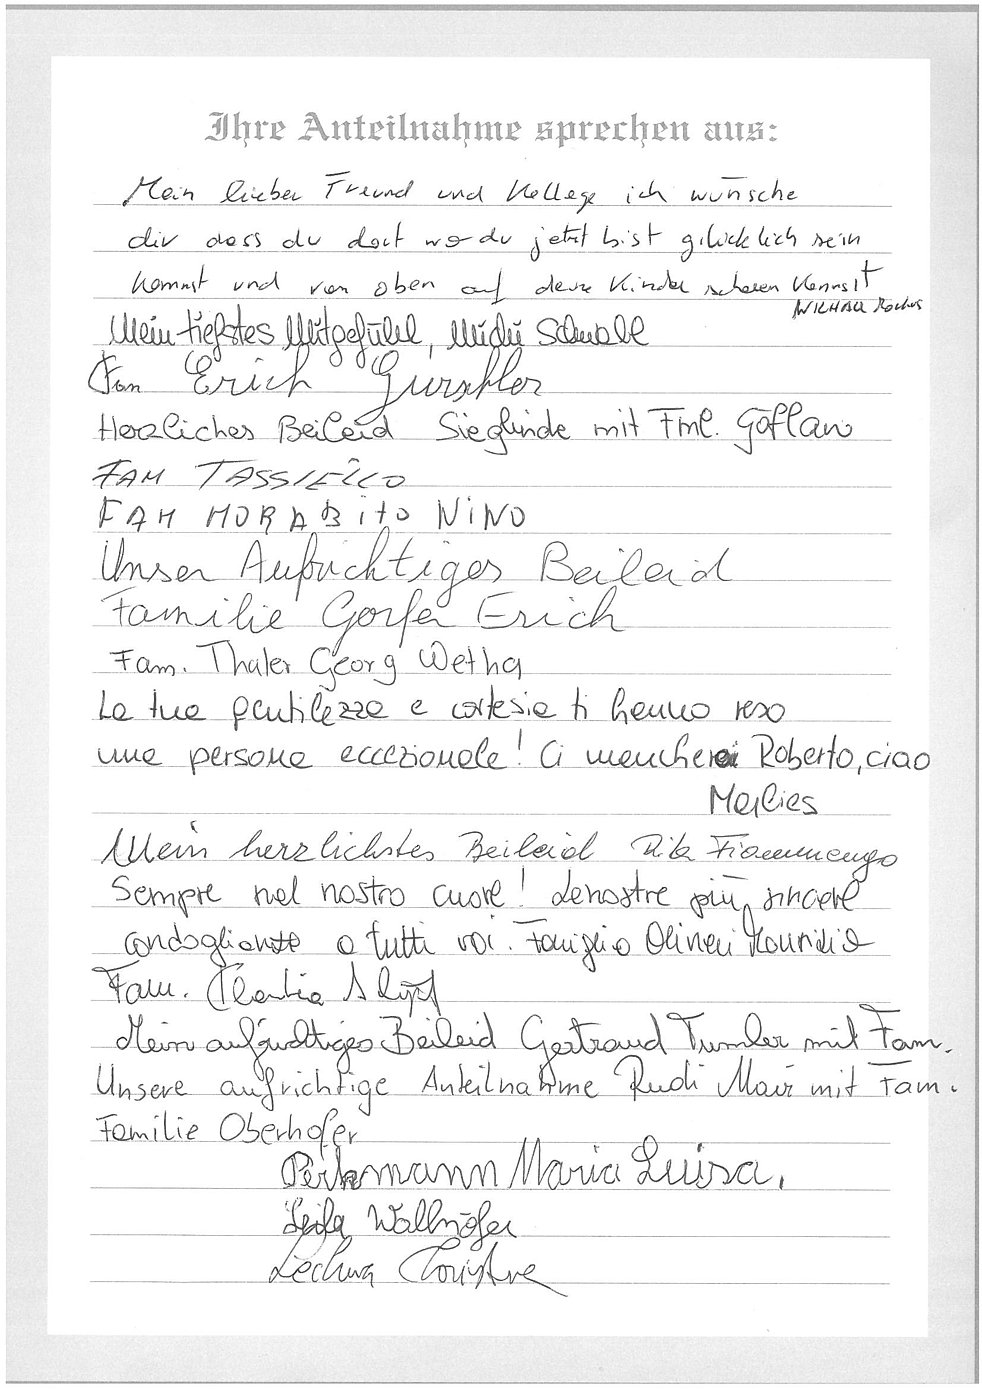 Ihre Anteilnahme sprechen aus:
Mein lieber Freund und Kollege ich wünsche
dir dass du dort wo du jetzt bist glücklich sein
kannst und von oben auf deine Kinder schauen kannst
Mein tiefstes Mitgefühl,
Fam Erich
Herzliches Beileid Sieglinde mit Fml. Göflan
FAM TASSIELLO
FAM MORABITO NINO
Unser Aufrichtiges Beileid
Familie Gorfer Erich
Fam. Thaler Georg
La tua gentilezza e cortesia ti hanno reso
una persona eccezionale! Ci mancherai Roberto, ciao
Marlies
Mein herzlichstes Beileid Rita Fiammengo
Sempre nel nostro cuore! Le nostre più sincere
condoglianze a tutti voi. Famiglia Olivieri Maurizio
Fam.
Mein aufrichtiges Beileid Gertraud Tumler mit Fam.
Unsere aufrichtige Anteilnahme Rudi Mair mit Fam.
Familie Oberhofer
Perkmann Maria Luisa.
Wallnöfer